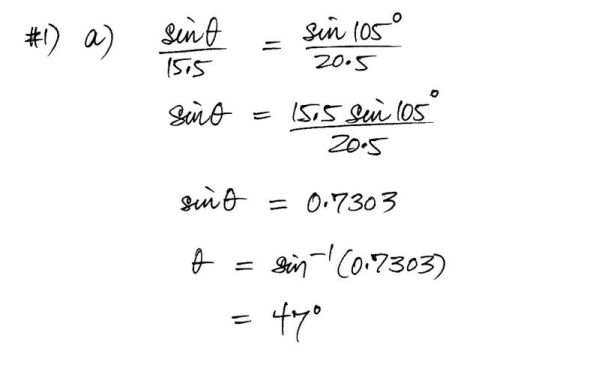 #1) a) sinθ/15.5 = sin 105°/20.5
sinθ = 15.5 sin 105°/20.5
sinθ = 0.7303
θ = sin⁻¹(0.7303)
= 47°